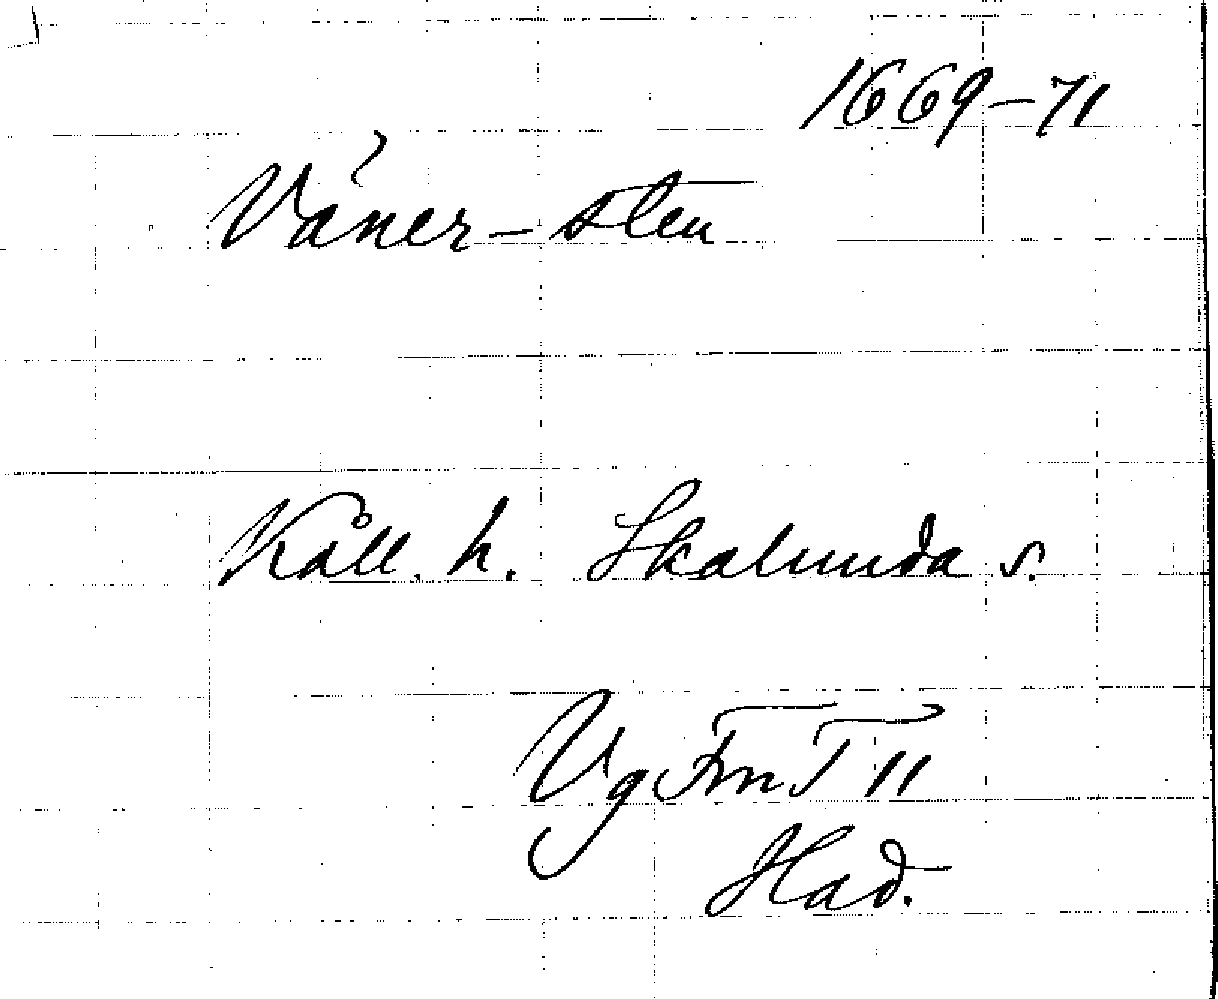 1669–71
Väner-sten
Kåll. h. Skalunda s.
VgFmT II
Had.